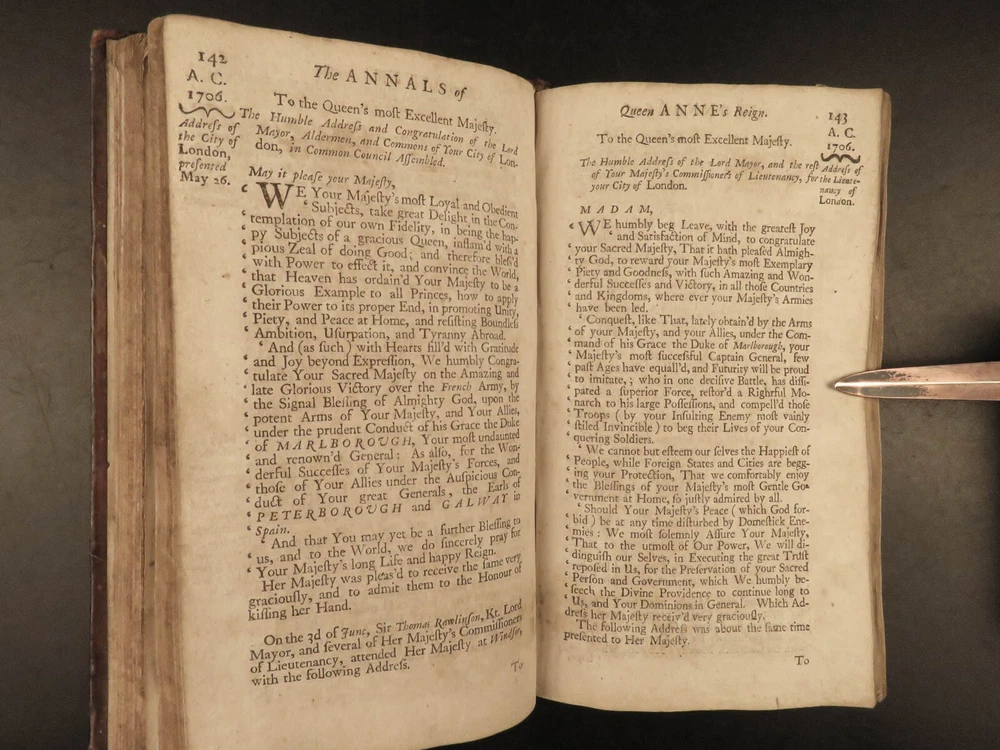 142
The ANNALS of
A. C.
1706.
Addreſs of
the City of
London,
preſented
May 26.
To the Queen's moſt Excellent Majeſty.
The Humble Addreſs and Congratulation of the Lord
Mayor, Aldermen, and Commons of Your City of Lon-
don, in Common Council Aſſembled.
May it pleaſe your Majeſty,
‘ WE Your Majeſty's moſt Loyal and Obedient
‘ Subjects, take great Delight in the Con-
‘ templation of our own Fidelity, in being the hap-
‘ py Subjects of a gracious Queen, inflam'd with a
‘ pious Zeal of doing Good; and therefore bleſs'd
‘ with Power to effect it, and convince the World,
‘ that Heaven has ordain'd Your Majeſty to be a
‘ Glorious Example to all Princes, how to apply
‘ their Power to its proper End, in promoting Unity,
‘ Piety, and Peace at Home, and reſiſting Boundleſs
‘ Ambition, Uſurpation, and Tyranny Abroad.
‘ And (as ſuch) with Hearts fill'd with Gratitude
‘ and Joy beyond Expreſſion, We humbly Congra-
‘ tulate Your Sacred Majeſty on the Amazing and
‘ late Glorious Victory over the French Army, by
‘ the Signal Bleſſing of Almighty God, upon the
‘ potent Arms of Your Majeſty, and Your Allies,
‘ under the prudent Conduct of his Grace the Duke
‘ of MARLBOROUGH, Your moſt undaunted
‘ and renown'd General: As alſo, for the Won-
‘ derful Succeſſes of Your Majeſty's Forces, and
‘ thoſe of Your Allies under the Auſpicious Con-
‘ duct of Your great Generals, the Earls of
‘ PETERBOROUGH and GALWAY in
‘ Spain.
‘ And that You may yet be a further Bleſſing to
‘ us, and to the World, we do ſincerely pray for
‘ Your Majeſty's long Life and happy Reign.
Her Majeſty was pleas'd to receive the ſame very
graciouſly, and to admit them to the Honour of
kiſſing her Hand.
On the 3d of June, Sir Thomas Rawlinſon, Kt. Lord
Mayor, and ſeveral of Her Majeſty's Commiſſioners
of Lieutenancy, attended Her Majeſty at Windſor,
with the following Addreſs.
To
Queen ANNE's Reign.
143
A. C.
1706.
Addreſs of
the Lieute-
nancy of
London.
To the Queen's moſt Excellent Majeſty.
The Humble Addreſs of the Lord Mayor, and the reſt
of Your Majeſty's Commiſſioners of Lieutenancy, for
your City of London.
MADAM,
‘ WE humbly beg Leave, with the greateſt Joy
‘ and Satisfaction of Mind, to congratulate
‘ your Sacred Majeſty, That it hath pleaſed Almigh-
‘ ty God, to reward your Majeſty's moſt Exemplary
‘ Piety and Goodneſs, with ſuch Amazing and Won-
‘ derful Succeſſes and Victory, in all thoſe Countries
‘ and Kingdoms, where ever your Majeſty's Armies
‘ have been led.
‘ Conqueſt, like That, lately obtain'd by the Arms
‘ of your Majeſty, and your Allies, under the Com-
‘ mand of his Grace the Duke of Marlborough, your
‘ Majeſty's moſt ſucceſsful Captain General, few
‘ paſt Ages have equall'd, and Futurity will be proud
‘ to imitate,; who in one deciſive Battle, has diſſi-
‘ pated a ſuperior Force, reſtor'd a Rightful Mo-
‘ narch to his large Poſſeſſions, and compell'd thoſe
‘ Troops (by your Inſulting Enemy moſt vainly
‘ ſtiled Invincible) to beg their Lives of your Con-
‘ quering Soldiers.
‘ We cannot but eſteem our ſelves the Happieſt of
‘ People, while Foreign States and Cities are begg-
‘ ing your Protection, That we comfortably enjoy
‘ the Bleſſings of your Majeſty's moſt Gentle Go-
‘ vernment at Home, ſo juſtly admired by all.
‘ Should Your Majeſty's Peace (which God for-
‘ bid) be at any time diſturbed by Domeſtick Ene-
‘ mies: We moſt ſolemnly Aſſure Your Majeſty,
‘ That to the utmoſt of Our Power, We will di-
‘ ſtinguiſh our Selves, in Executing the great Truſt
‘ repoſed in Us, for the Preſervation of your Sacred
‘ Perſon and Government, which We humbly be-
‘ ſeech the Divine Providence to continue long to
‘ Us, and Your Dominions in General. Which Ad-
dreſs her Majeſty receiv'd very graciouſly.
The following Addreſs was about the ſame time
preſented to Her Majeſty.
To